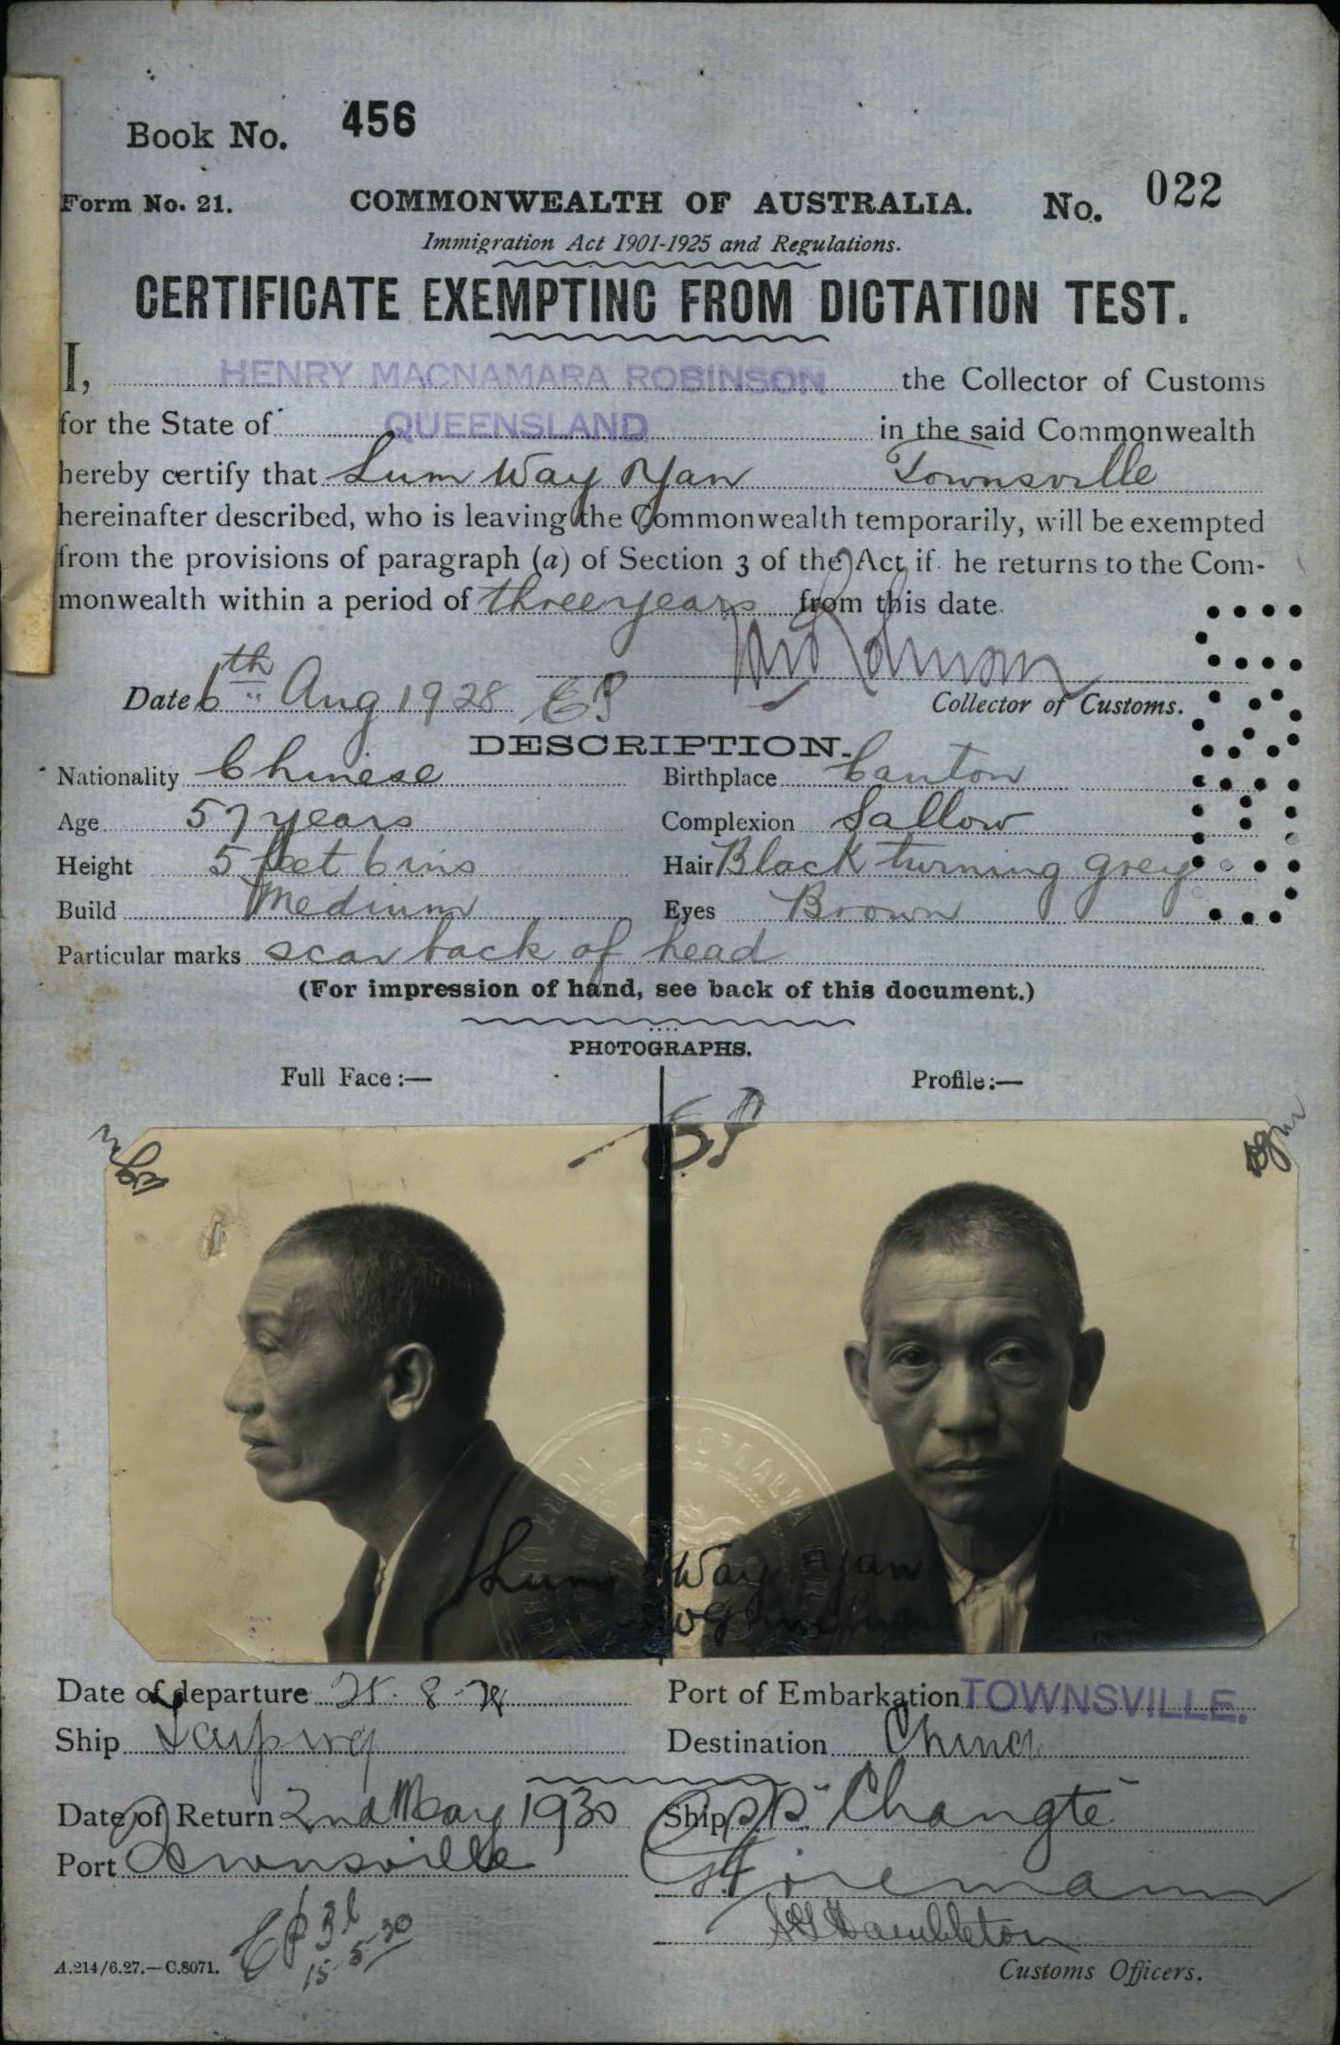 Book No. 456
Form No. 21. COMMONWEALTH OF AUSTRALIA. No. 022
Immigration Act 1901-1925 and Regulations.
CERTIFICATE EXEMPTING FROM DICTATION TEST.
I, HENRY MACNAMARA ROBINSON the Collector of Customs
for the State of QUEENSLAND in the said Commonwealth
hereby certify that Lum Way Yan Townsville
hereinafter described, who is leaving the Commonwealth temporarily, will be exempted
from the provisions of paragraph (a) of Section 3 of the Act if he returns to the Com-
monwealth within a period of three years from this date.
Date 6th Aug 1928
Collector of Customs.
DESCRIPTION.
Nationality Chinese Birthplace Canton
Age 57 years Complexion Sallow
Height 5 feet 6 ins Hair Black turning grey
Build Medium Eyes Brown
Particular marks scar back of head
(For impression of hand, see back of this document.)
PHOTOGRAPHS.
Full Face:— Profile:—
Lum Way Yan
Date of departure 25.8.28 Port of Embarkation TOWNSVILLE.
Ship Taiping Destination China
Date of Return 2nd May 1930 Ship S.S. "Changte"
Port Townsville
15-5-30
A.214/6.27.—C.8071. Customs Officers.